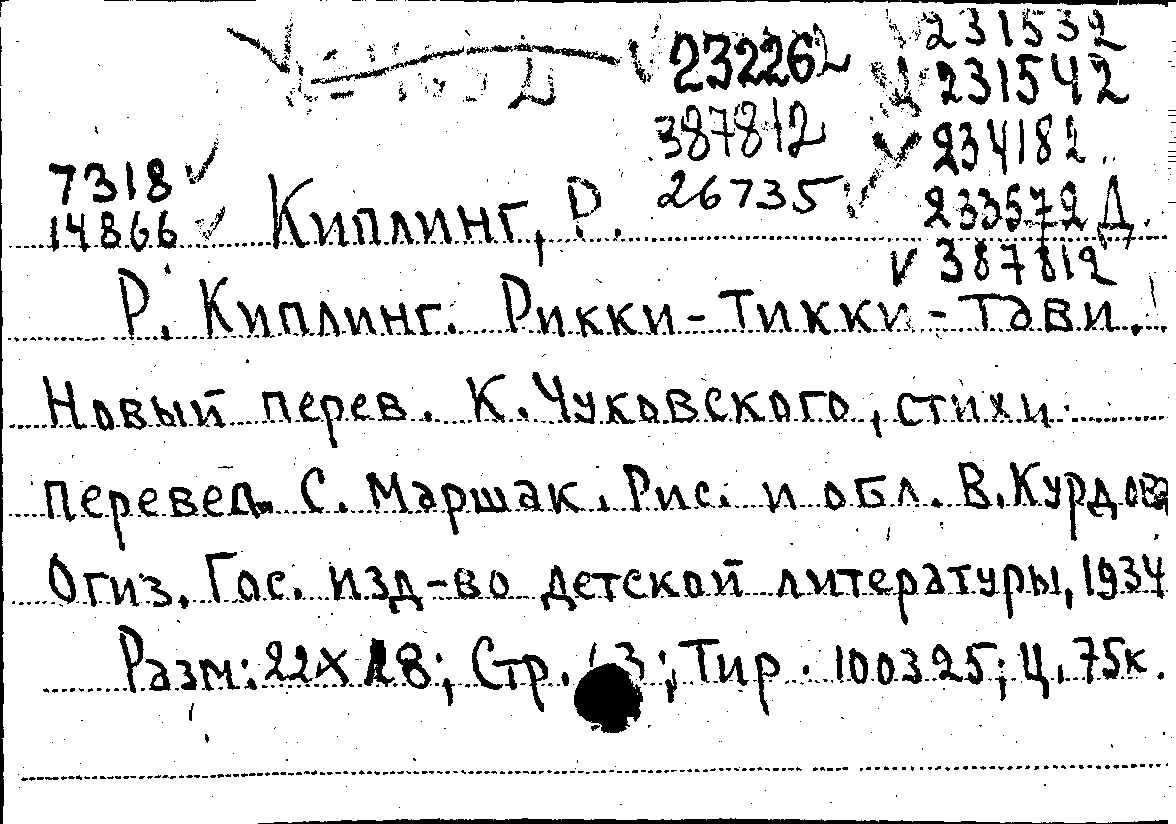 231532
232262
231542
387812
234182
7318
26735
14866
Киплинг, Р.
233572 Д.
387812
Р. Киплинг. Рикки-Тикки-Тави.
Новый перев. К. Чуковского, стихи
перевед. С. Маршак. Рис. и обл. В. Курдова
Огиз. Гос. изд-во детской литературы, 1934
Разм: 22х18; Стр. 3; Тир. 100325; Ц. 75к.